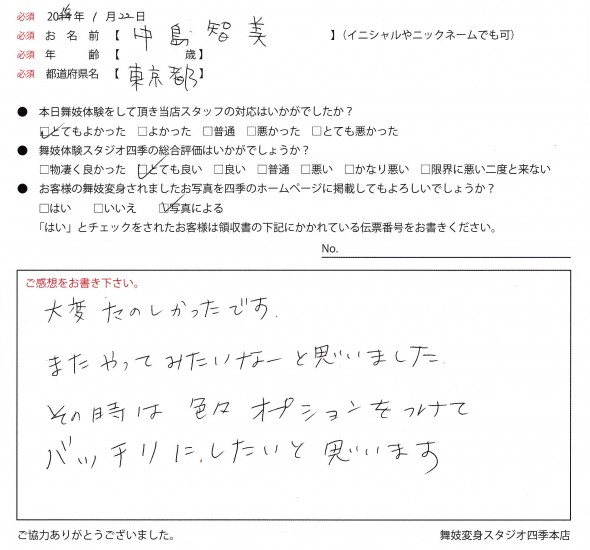 必須 2014年 1 月 22 日
必須 お 名 前 【 中島 智美 】(イニシャルやニックネームでも可)
必須 年 齢 【 歳】
必須 都道府県名 【 東京都 】
● 本日舞妓体験をして頂き当店スタッフの対応はいかがでしたか？
☑とてもよかった □よかった □普通 □悪かった □とても悪かった
● 舞妓体験スタジオ四季の総合評価はいかがでしょうか？
□物凄く良かった ☑とても良い □良い □普通 □悪い □かなり悪い □限界に悪い二度と来ない
● お客様の舞妓変身されましたお写真を四季のホームページに掲載してもよろしいでしょうか？
□はい □いいえ ☑写真による
「はい」とチェックをされたお客様は領収書の下記にかかれている伝票番号をお書きください。
No.
ご感想をお書き下さい。
大変 たのしかったです.
またやってみたいなーと思いました.
その時は 色々 オプションをつけて
バッチリに.したいと 思います
ご協力ありがとうございました。
舞妓変身スタジオ四季本店